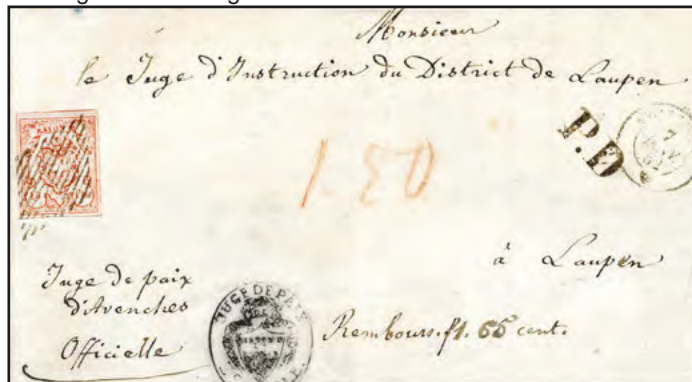 Monsieur
le Juge d'Instruction du District de Laupen
RAYON
P.D
7
1.50
à Laupen
Juge de paix
d'Avenches
Officielle
JUGE DE PAIX
Rembours. f 1. 55 cent.